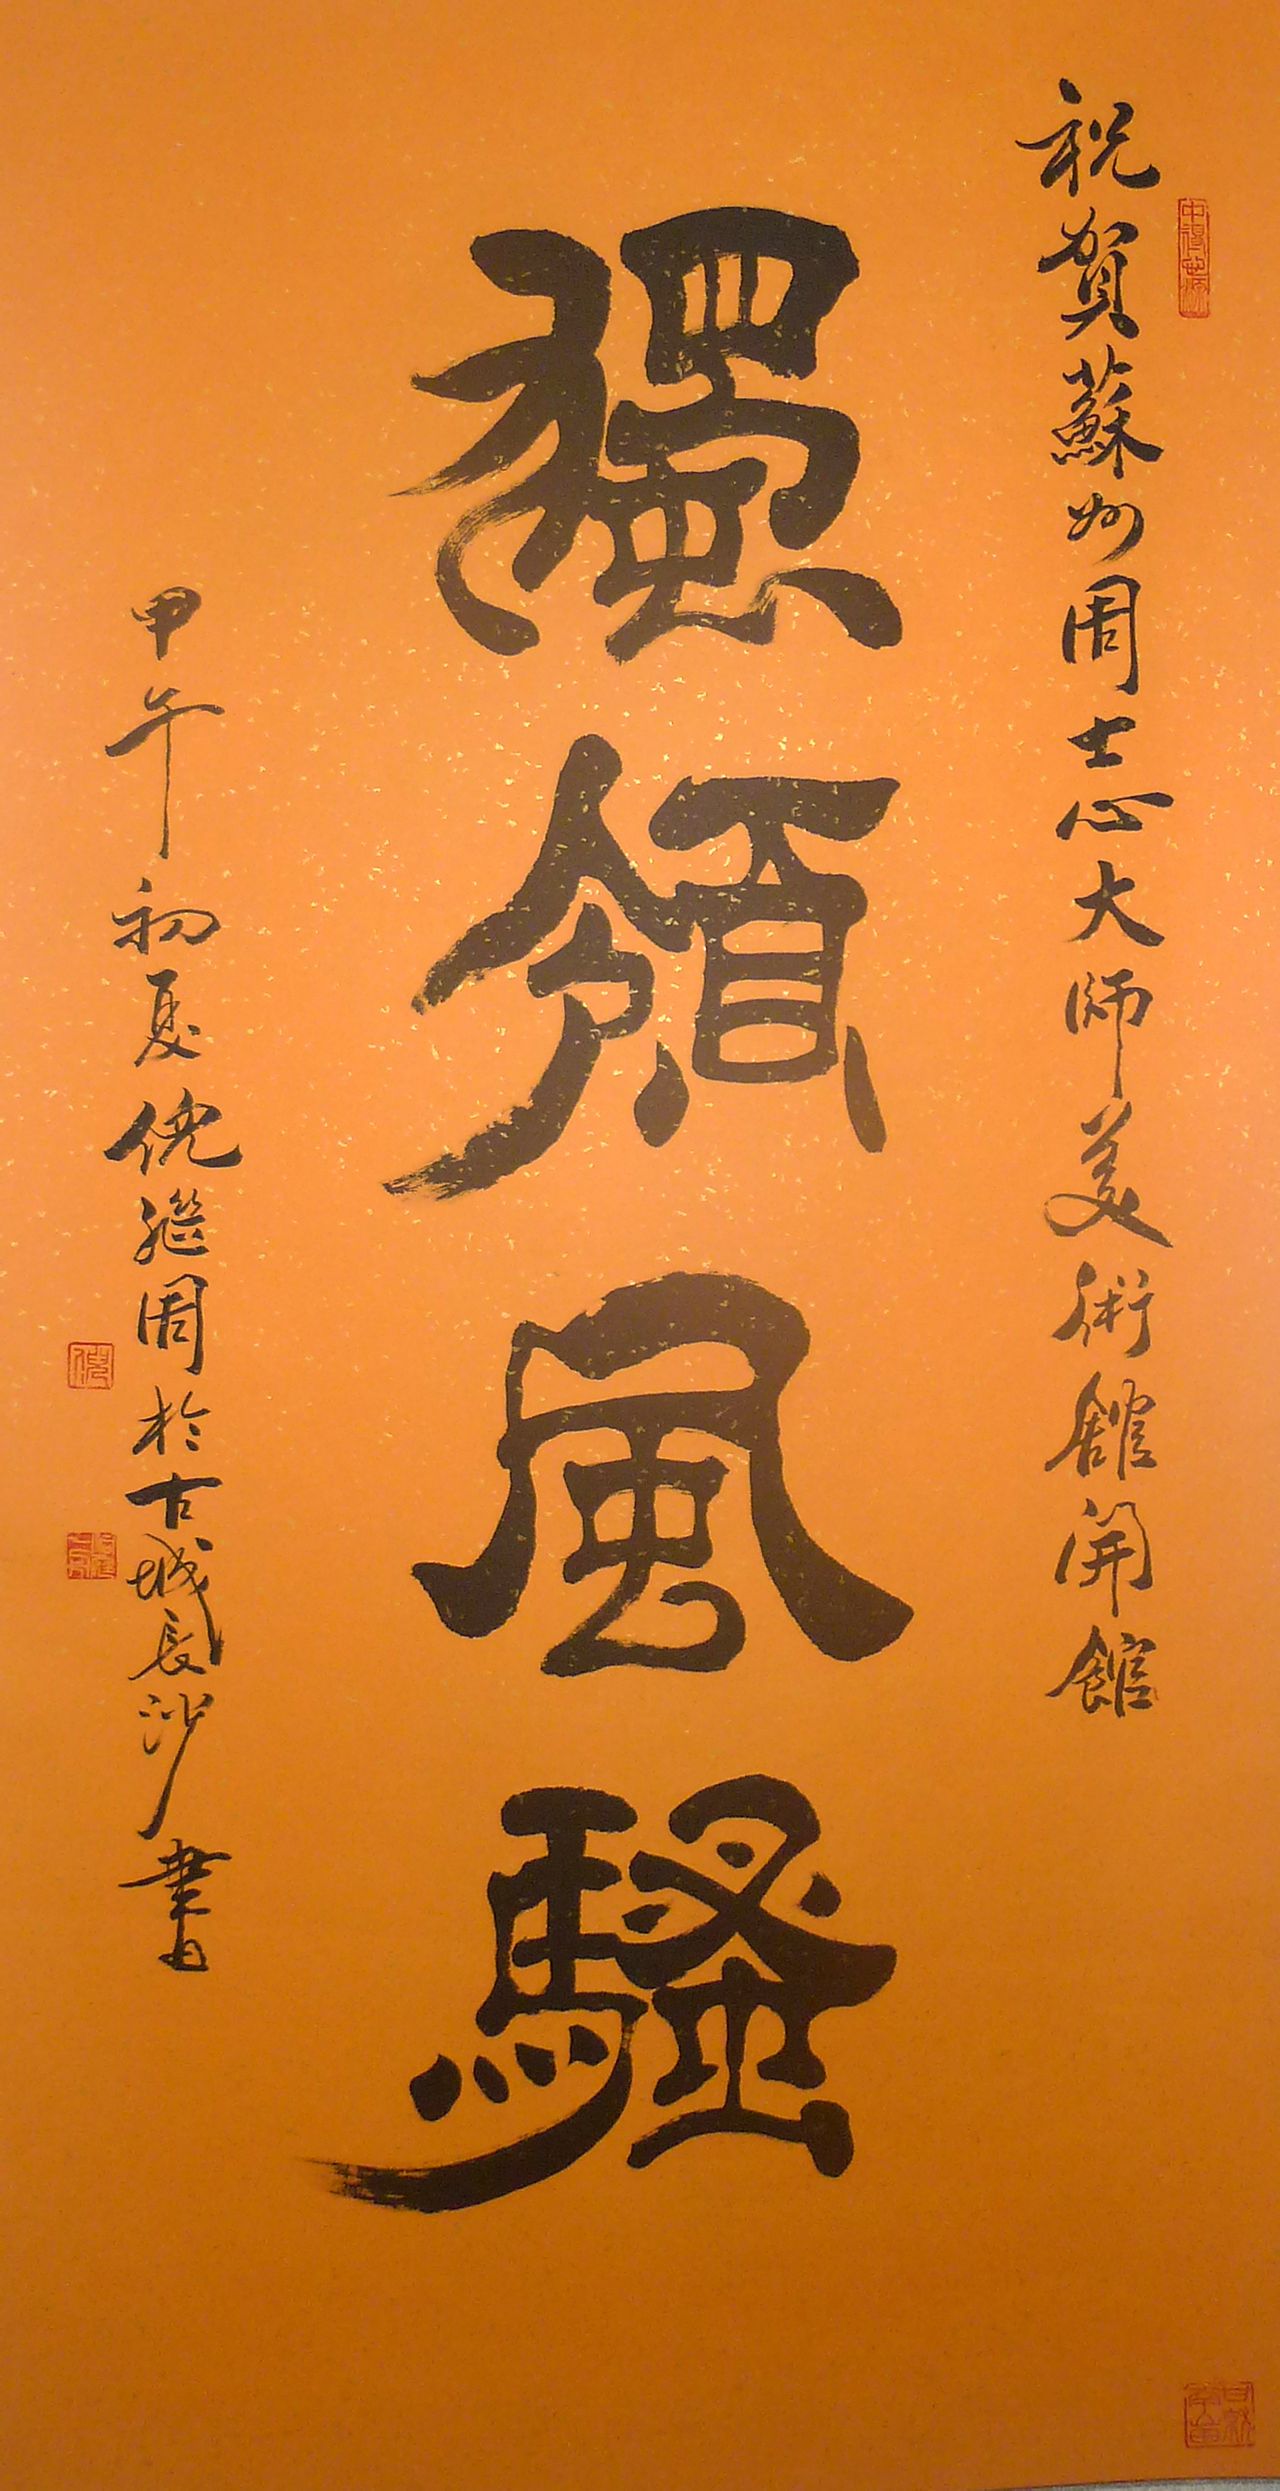 祝賀蘇州周士心大師美術館開館
獨領風騷
甲午初夏倪繼周於古城長沙書